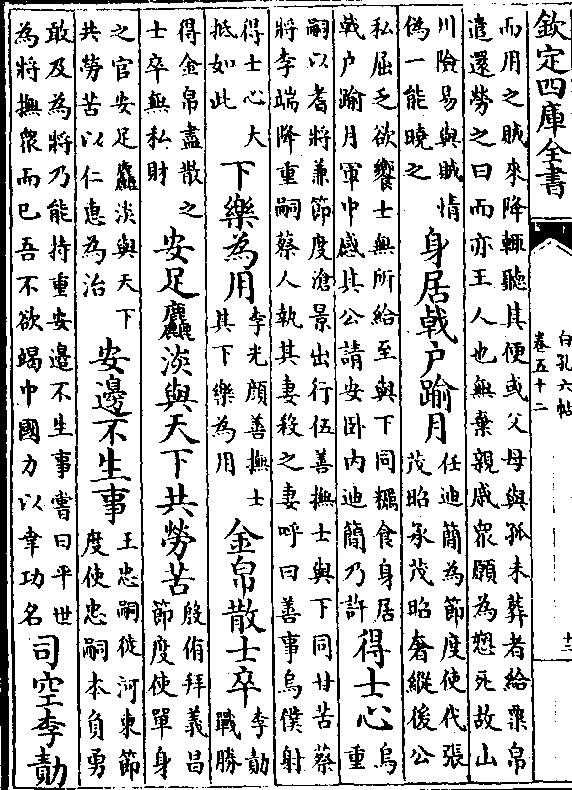 欽定四庫全書
白孔六帖
卷五十二
十三
而用之賊來降輒聽其便或父母與孤未葬者給粟帛
遣還勞之曰而亦王人也無棄親戚衆願為愬死故山
川險易與賊情
偽一能曉之
身居㦸户踰月
任迪簡為節度使代張
茂昭承茂昭奢縱後公
私屈乏欲饗士無所給至與下同糲食身居
㦸户踰月軍中感其公請安卧内迪簡乃許
得士心
烏
重
嗣以耆將兼節度滄景出行伍善撫士與下同甘苦蔡
將李端降重嗣蔡人執其妻殺之妻呼曰善事烏僕射
得士心大
抵如此
下樂為用
李光顔善撫士
其下樂為用
金帛散士卒
李勣
戰勝
得金帛盡散之
士卒無私財
安足麤淡與天下共勞苦
殷侑拜義昌
節度使單身
之官安足麤淡與天下
共勞苦以仁惠為治
安邊不生事
王忠嗣徙河東節
度使忠嗣本負勇
敢及為將乃能持重安邊不生事嘗曰平世
為將撫衆而已吾不欲竭中國力以幸功名
司空李勣